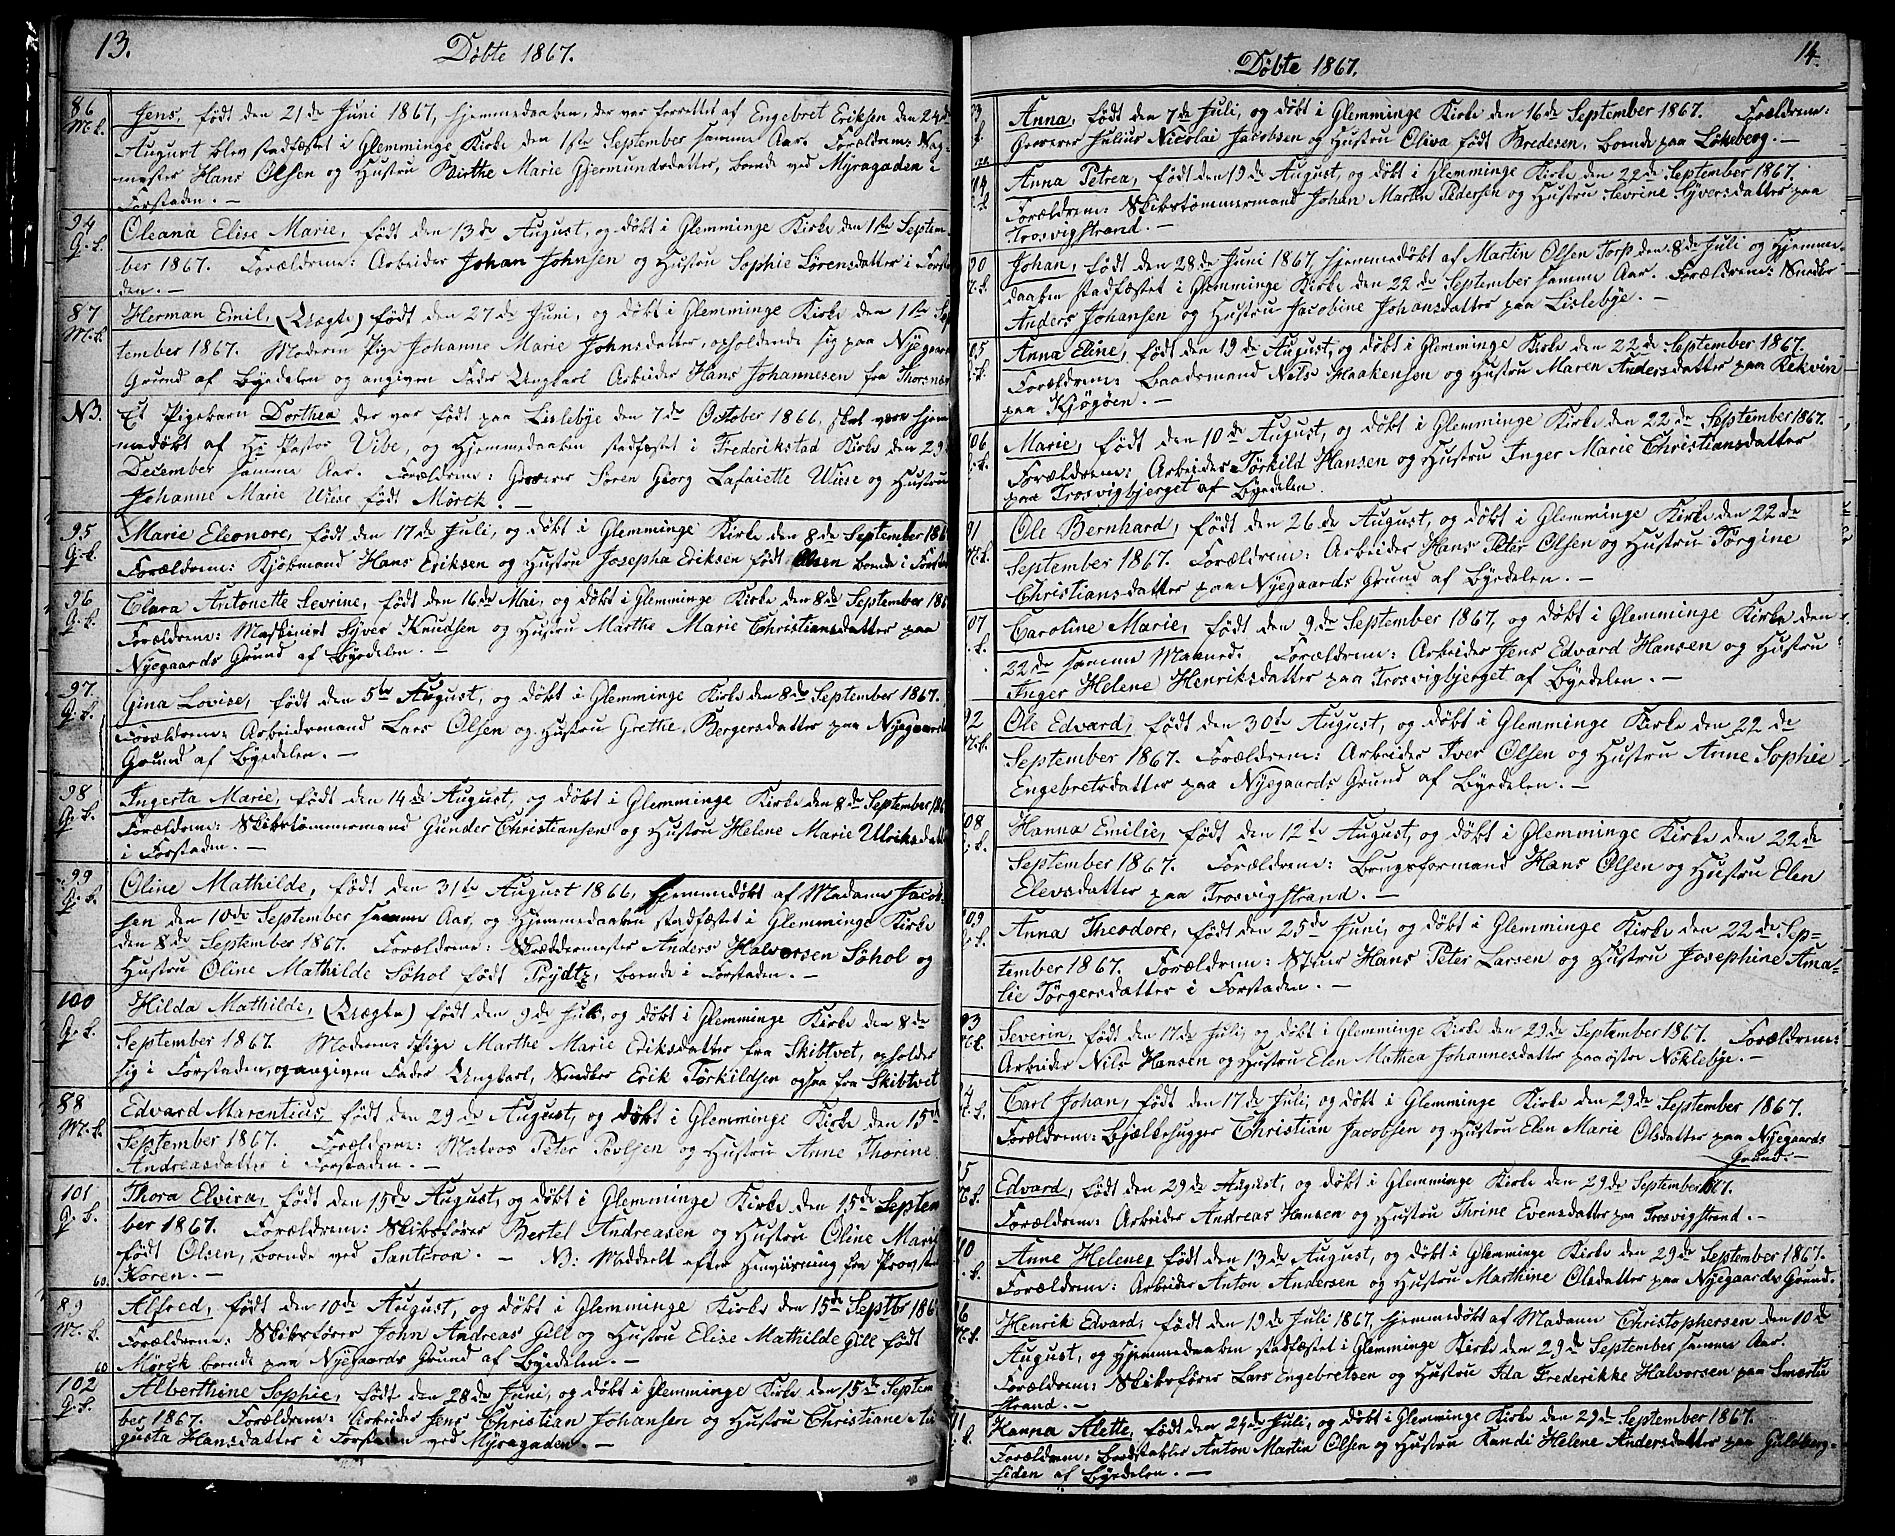 13.
Döbte 1867.
86 M.k. Jens, født den 21de Juni 1867, hjemmedaaben, der var forrettet af Engebret Eriksen den 24de
August blev stadfæstet i Glemminge Kirke den 1ste September samme Aar. Forældrene: Nag-
mester Hans Olsen og Hustru Birthe Marie Gjermundsdatter, boende ved Myragaden i
Forstaden. —
94 G.k. Oleana Elise Marie, født den 13de August, og døbt i Glemminge Kirke den 1ste Septem-
ber 1867. Forældrene: Arbeider Johan Johnsen og Hustru Sophie Sörensdatter i Forsta
den. —
87 M.k. Herman Emil, (Uægte) født den 27de Juni, og døbt i Glemminge Kirke den 1ste Sep
tember 1867. Moderen Pige Johanne Marie Johnsdatter, opholdende sig paa Nyegaards
Grund af Byedelen og angiven Fader Ungkarl Arbeider Hans Johannesen fra Thorsnæs
NB. Et Pigebarn Dorthea der var født paa Lislebye den 7de October 1866, skal være hjem
medøbt af Hr Pastor Vibe, og Hjemmedaaben stadfæstet i Frederikstad Kirke den 29
December samme Aar. Forældrene: Grosserer Soren Georg Lafaiette Wiese og Hustru
Johanne Marie Wiese født Mörck. —
95 G.k. Marie Eleonore, født den 17de Juli, og døbt i Glemminge Kirke den 8de September 186
Forældrene: Kjöbmand Hans Eriksen og Hustru Josepha Eriksen født Olsen boende i Forsta
96 G.k. Clara Antonette Sevrine, født den 16de Mai, og døbt i Glemminge Kirke den 8de September 186
Forældrene: Maskinist Syver Knudsen og Hustru Marthe Marie Christiansdatter paa
Nyegaards Grund af Byedelen. —
97. G.k. Gina Lovise, født den 5te August, og døbt i Glemminge Kirke den 8de September 1867.
Forældrene: Arbeidsmand Lars Olsen og Hustru Grethe Bergersdatter paa Nyegaards
Grund af Byedelen. —
98 G.k. Ingerta Marie, født den 14de August, og døbt i Glemminge Kirke den 8de September 186
Forældrene: Skibstömmermand Gunder Christiansen og Hustru Helene Marie Ulriksdatt
i Forstaden. —
99 G.k. Oline Mathilde, født den 31te August 1866, hjemmedøbt af Madame Jacob
sen den 10de September samme Aar, og Hjemmedaaben stadfæstet i Glemminge Kirke
den 8de September 1867. Forældrene: Skræddermester Anders Halvorsen Söhol og
Hustru Oline Mathilde Söhol født Prydtz, boende i Forstaden. —
100 G.k. Hilda Mathilde, (Uægte) født den 9de Juli, og døbt i Glemminge Kirke den 8de
September 1867. Moderen: Pige Marthe Marie Eriksdatter fra Skibtvet, opholder
sig i Forstaden, og angiven Fader Ungkarl, Snedker Erik Törkildsen ogsaa fra Skibtvet
88 M.k. Edvard Marentius, født den 29de August, og døbt i Glemminge Kirke den 15de
September 1867. Forældrene: Matros Peter Povlsen og Hustru Anne Thorine
Andreasdatter i Forstaden. —
101 G.k. Thora Elvira, født den 15de August, og døbt i Glemminge Kirke den 15de Septem
ber 1867. Forældrene: Skibsförer Bertel Andreasen og Hustru Oline Marie
født Olsen, boende ved — NB: Meddelt efter Henviisning fra Provst
60. Koren. —
89 M.k. Alfred, født den 10de August, og døbt i Glemminge Kirke den 15de Septbr 186
Forældrene: Skibsförer John Andreas Gill og Hustru Elise Mathilde Gill født
60 Mörck boende paa Nyegaards Grund af Byedelen. —
102 G.k. Alberthine Sophie, født den 28de Juni, og døbt i Glemminge Kirke den 15de Septem
ber 1867. Forældrene: Arbeider Jens Christian Johansen og Hustru Christiane Au
gusta Hansdatter i Forstaden ved Myragaden. —
14.
Döbte 1867.
Anna, født den 7de Juli, og døbt i Glemminge Kirke den 16de September 1867. Forældrene:
Grosserer Julius Nicolai Jacobsen og Hustru Oliva født Bredesen, boende paa Lökeberg. —
Anna Petrea, født den 19de August, og døbt i Glemminge Kirke den 22de September 1867.
Forældrene: Skibstömmermand Johan Martin Pedersen og Hustru Sevrine Syversdatter paa
Trosvigstrand. —
90 Johan, født den 28de Juni 1867, hjemmedøbt af Martin Olsen Torp den 8de Juli og Hjemme-
daaben stadfæstet i Glemminge Kirke den 22de September samme Aar. Forældrene: Snedker
Anders Johansen og Hustru Jacobine Johansdatter paa Lislebye. —
05 Anna Eline, født den 19de August, og døbt i Glemminge Kirke den 22de September 1867.
Forældrene: Baadsmand Nils Haakensen og Hustru Maren Andersdatter paa Rekvin
paa Kjøgöen. —
06 Marie, født den 10de August, og døbt i Glemminge Kirke den 22de September 1867.
Forældrene: Arbeider Törkild Hansen og Hustru Inger Marie Christiansdatter
paa Trosvigbjerget af Byedelen.
91 Ole Bernhard, født den 26de August, og døbt i Glemminge Kirke den 22de
September 1867. Forældrene: Arbeider Hans Peter Olsen og Hustru Törgine
Christiansdatter paa Nyegaards Grund af Byedelen. —
07 Caroline Marie, født den 9de September 1867, og døbt i Glemminge Kirke den
22de samme Maaned. Forældrene: Arbeider Jens Edvard Hansen og Hustru
Inger Helene Henriksdatter paa Trosvigbjerget af Byedelen. —
92 Ole Edvard, født den 30te August, og døbt i Glemminge Kirke den 22de
September 1867. Forældrene: Arbeider Iver Olsen og Hustru Anne Sophie
Engebretsdatter paa Nyegaards Grund af Byedelen. —
08 Hanna Emilie, født den 12te August, og døbt i Glemminge Kirke den 22de
September 1867. Forældrene: Brugsformand Hans Olsen og Hustru Elen
Elevsdatter paa Trosvigstrand. —
09 Anna Theodore, født den 25de Juni, og døbt i Glemminge Kirke den 22de Sep-
tember 1867. Forældrene: Stuer Hans Peter Larsen og Hustru Josephine Ama-
lie Törgersdatter i Forstaden. —
93 Severin, født den 17de Juli, og døbt i Glemminge Kirke den 29de September 1867. Forældrene:
Arbeider Nils Hansen og Hustru Elen Mathea Johannesdatter paa östre Noklebye. —
Carl Johan, født den 17de Juli, og døbt i Glemminge Kirke den 29de September 1867.
Forældrene: Bjælkehugger Christian Jacobsen og Hustru Elen Marie Olsdatter paa Nyegaards
Grund. —
Edvard, født den 29de August, og døbt i Glemminge Kirke den 29de September 1867.
Forældrene: Arbeider Andreas Hansen og Hustru Thrine Evensdatter paa Trosvigstrand. —
10 Anne Helene, født den 13de August, og døbt i Glemminge Kirke den 29de September 1867.
Forældrene: Arbeider Anton Andersen og Hustru Marthine Olsdatter paa Nyegaards Grund.
6 Henrik Edvard, født den 19de Juli 1867, hjemmedøbt af Madam Christophersen den 10de
August, og Hjemmedaaben stadfæstet i Glemminge Kirke den 29de September samme Aar.
Forældrene: Skibsförer Lars Engebretsen og Hustru Ida Frederikke Halvorsen paa Smertu
strand. —
Hanna Alette, født den 24de Juli, og døbt i Glemminge Kirke den 29de September 1867.
Forældrene: Bordstabler Anton Martin Olsen og Hustru Randi Helene Andersdatter paa Guldberg-
siden af Byedelen. —